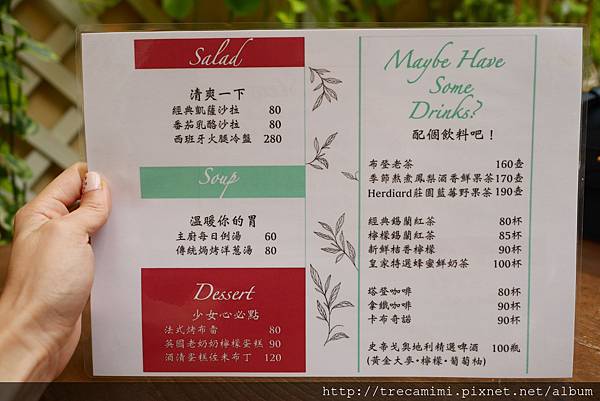 Salad
清爽一下
經典凱薩沙拉 80
番茄乳酪沙拉 80
西班牙火腿冷盤 280
Soup
溫暖你的胃
主廚每日例湯 60
傳統焗烤洋蔥湯 80
Dessert
少女心必點
法式烤布蕾 80
英國老奶奶檸檬蛋糕 90
酒漬蛋糕佐米布丁 120
Maybe Have
Some
Drinks?
配個飲料吧！
布登老茶 160壺
季節熬煮鳳梨酒香鮮果茶 170壺
Herdiard莊園藍莓野果茶 190壺
經典錫蘭紅茶 80杯
檸檬錫蘭紅茶 85杯
新鮮桔香檸檬 90杯
皇家特選蜂蜜鮮奶茶 100杯
塔登咖啡 80杯
拿鐵咖啡 90杯
卡布奇諾 90杯
史帝戈奧地利精選啤酒 100瓶
(黃金大麥・檸檬・葡萄柚)
http://trecamimi.pixnet.net/album